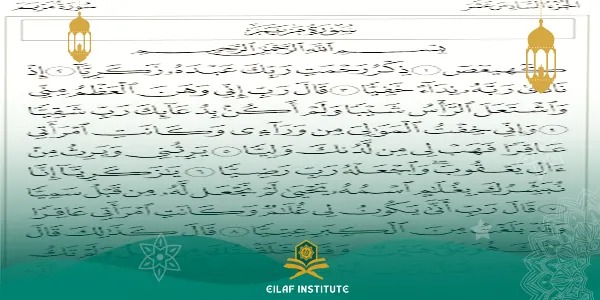 الجزء السادس عشر
سورة مريم
سورة مريم
بسم الله الرحمن الرحيم
كهيعص ١ ذكر رحمت ربك عبده زكريا ٢ إذ
نادى ربه نداء خفيا ٣ قال رب إني وهن العظم مني
واشتعل الرأس شيبا ولم أكن بدعائك رب شقيا
٤ وإني خفت الموالي من وراءى وكانت امرأتي
عاقرا فهب لي من لدنك وليا ٥ يرثني ويرث من
ءال يعقوب واجعله رب رضيا ٦ يزكريا إنا
نبشرك بغلم اسمه يحيى لم نجعل له من قبل سميا
٧ قال رب أنى يكون لي غلم وكانت امرأتي عاقرا
وقد بلغت من الكبر عتيا ٨ قال كذلك قال
EILAF INSTITUTE